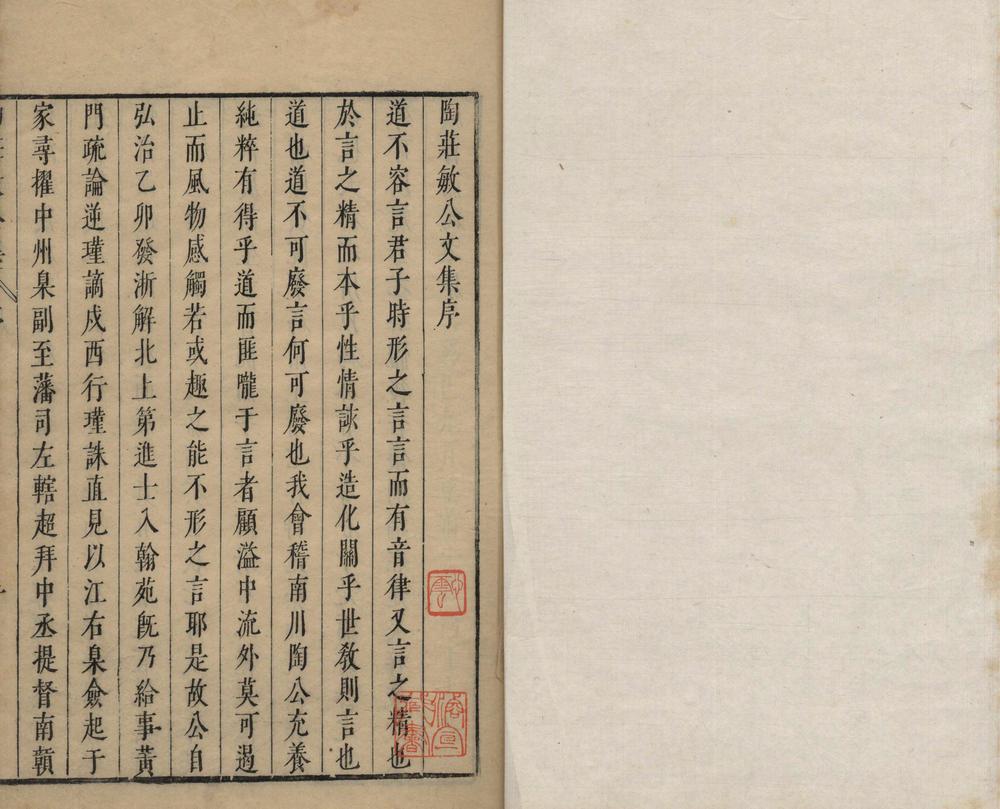 陶莊敏公文集序
道不容言君子時形之言言而有音律又言之精也
於言之精而本乎性情詠乎造化關乎世教則言也
道也道不可廢言何可廢也我會稽南川陶公充養
純粹有得乎道而匪嚨于言者顧溢中流外莫可遏
止而風物感觸若或趣之能不形之言耶是故公自
弘治乙卯發浙解北上第進士入翰苑旣乃給事黃
門疏論逆瑾謫戍西行瑾誅直見以江右臬僉起于
家尋擢中州臬副至藩司左轄超拜中丞提督南贛